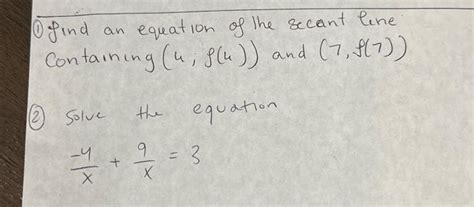 ① find an equation of the secant line
Containing (4, f(4)) and (7, f(7))
② Solve the equation
-4/x + 9/x = 3